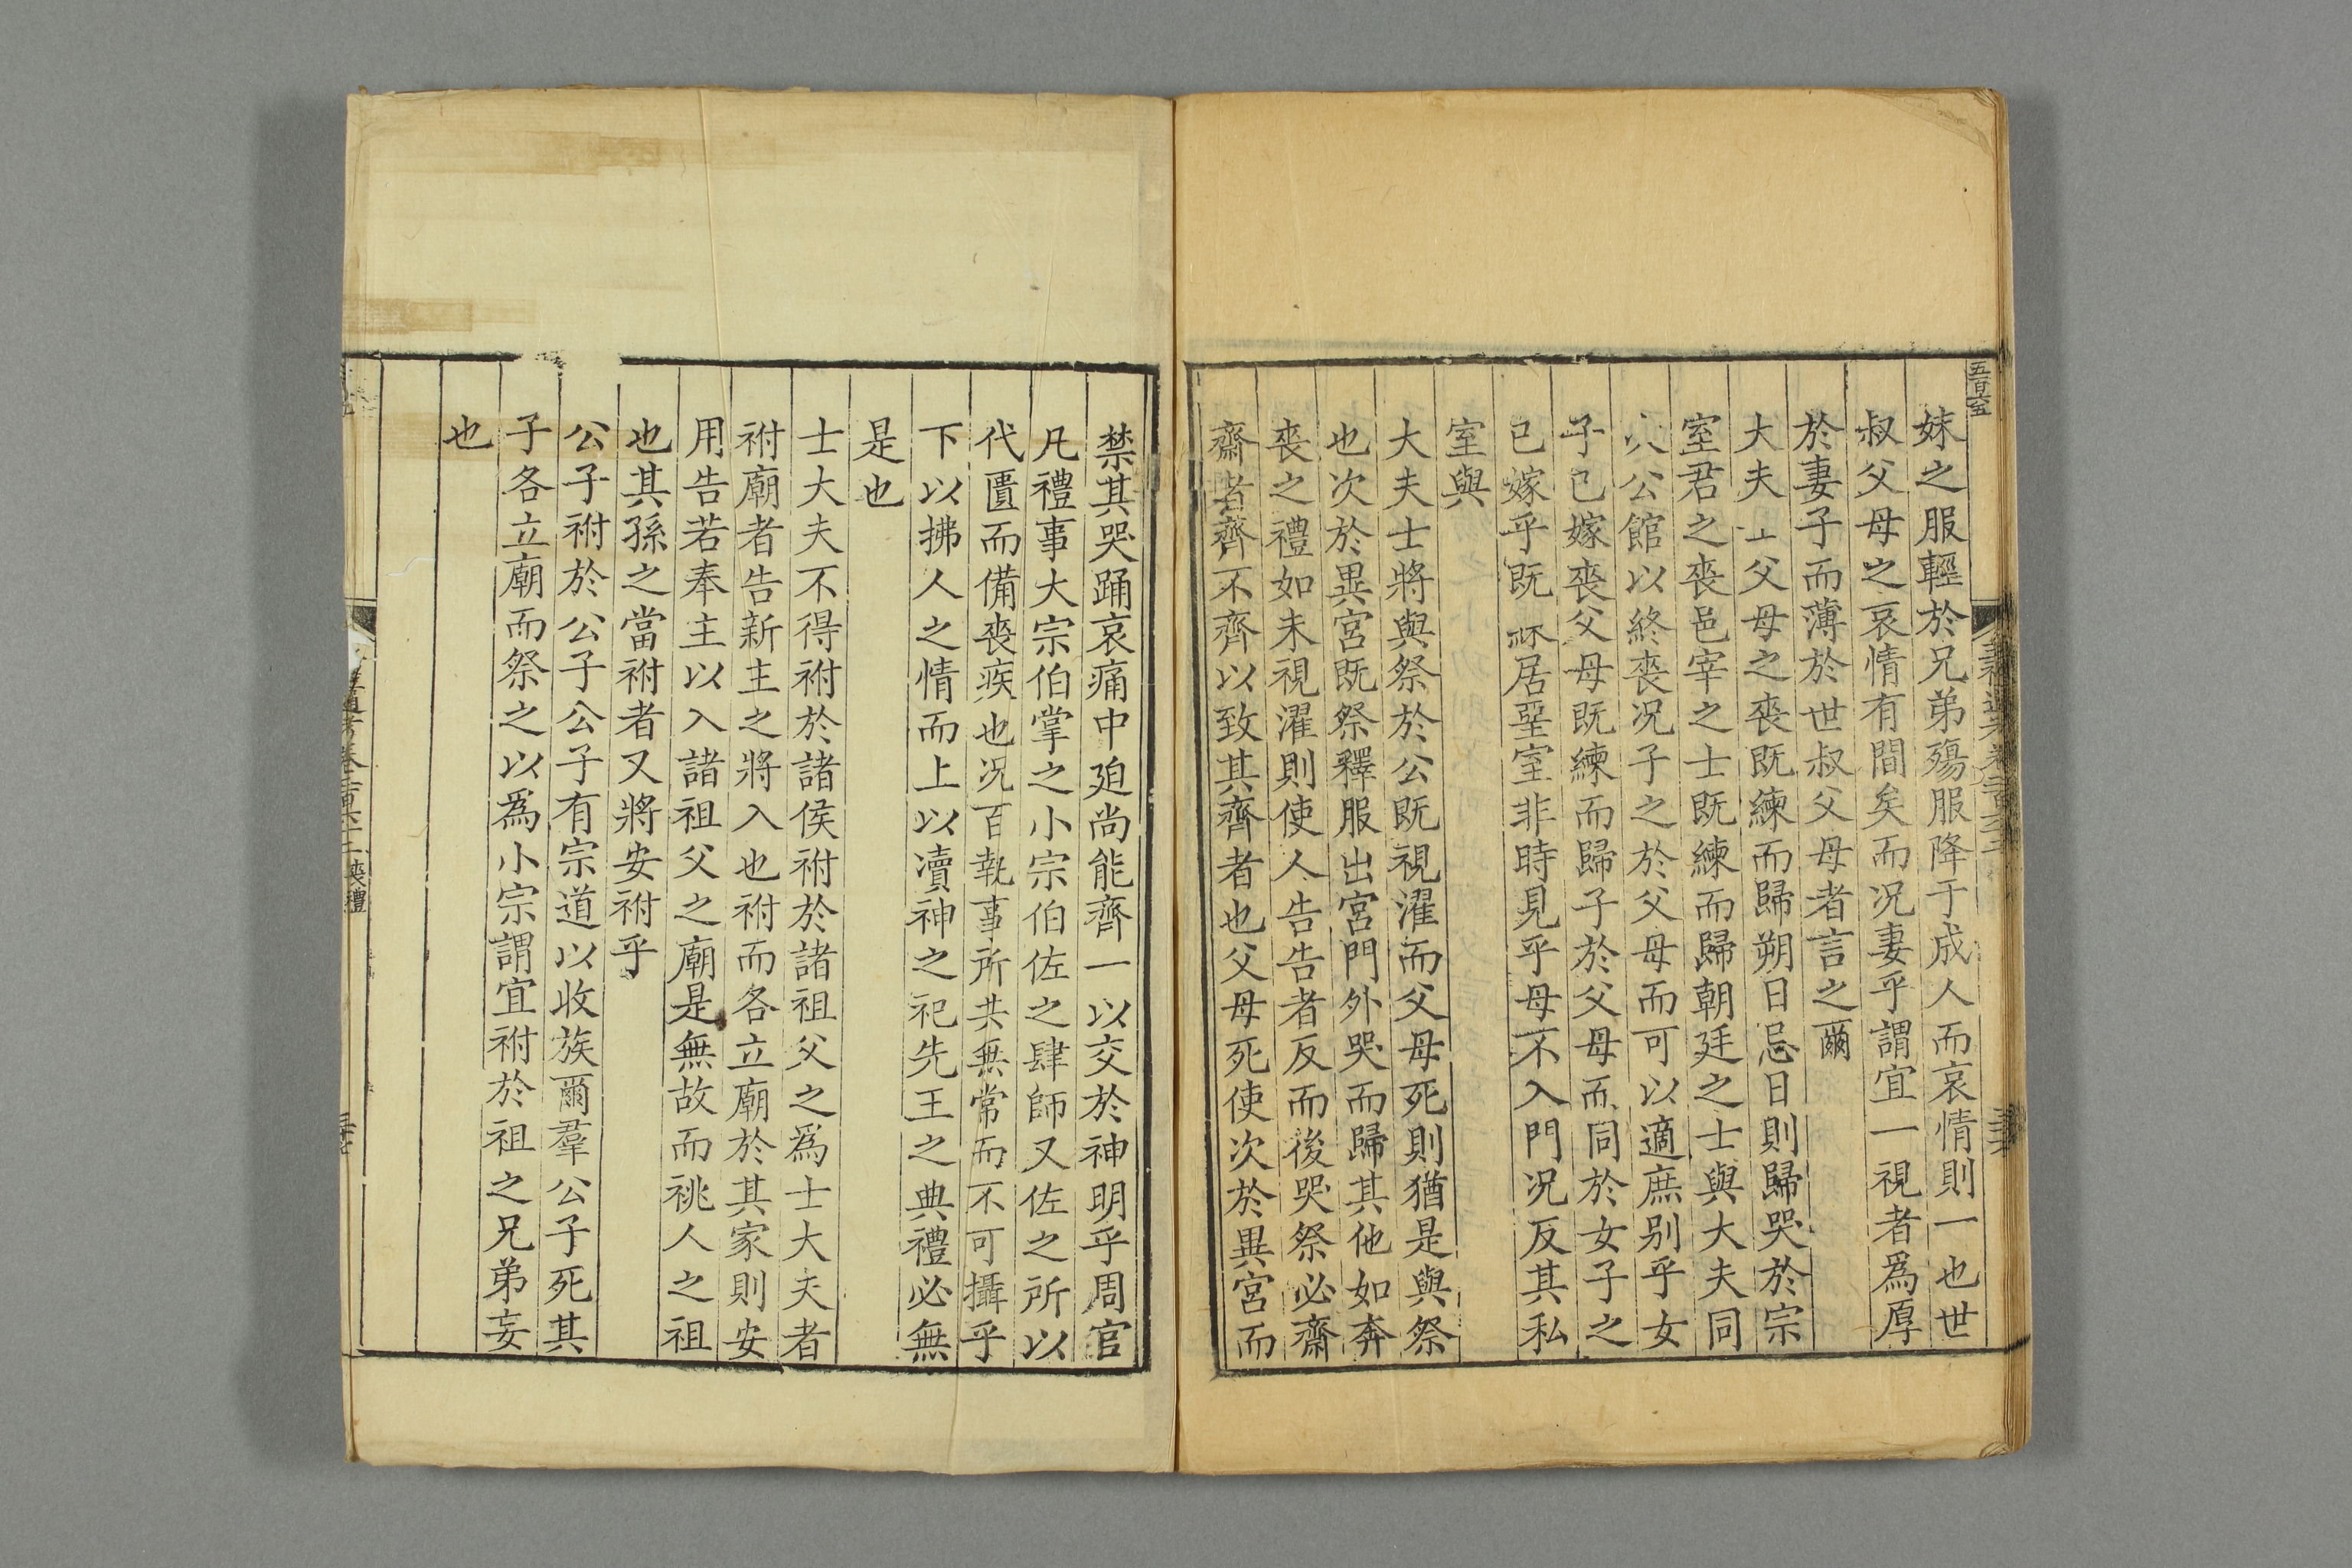 妹之服輕於兄弟殤服降于成人而哀情則一也世
叔父母之哀情有間矣而况妻乎謂宜一視者爲厚
於妻子而薄於世叔父母者言之爾
大夫士父母之喪既練而歸朔日忌日則歸哭於宗
室君之喪邑宰之士既練而歸朝廷之士與大夫同
次公館以終喪况子之於父母而可以適庶别乎女
子已嫁喪父母既練而歸子於父母而同於女子之
已嫁乎既練居堊室非時見乎母不入門况反其私
室與
大夫士將與祭於公既視濯而父母死則猶是與祭
也次於異宮既祭釋服出宮門外哭而歸其他如奔
喪之禮如未視濯則使人告告者反而後哭祭必齋
齋者齊不齊以致其齊者也父母死使次於異宮而
禁其哭踊哀痛中廹尚能齊一以交於神明乎周官
凡禮事大宗伯掌之小宗伯佐之肆師又佐之所以
代匱而備喪疾也况百執事所共無常而不可攝乎
下以拂人之情而上以瀆神之祀先王之典禮必無
是也
士大夫不得祔於諸侯祔於諸祖父之爲士大夫者
祔廟者告新主之將入也祔而各立廟於其家則安
用告若奉主以入諸祖父之廟是無故而祧人之祖
也其孫之當祔者又將安祔乎
公子祔於公子公子有宗道以收族爾羣公子死其
子各立廟而祭之以爲小宗謂宜祔於祖之兄弟妄
也
喪禮